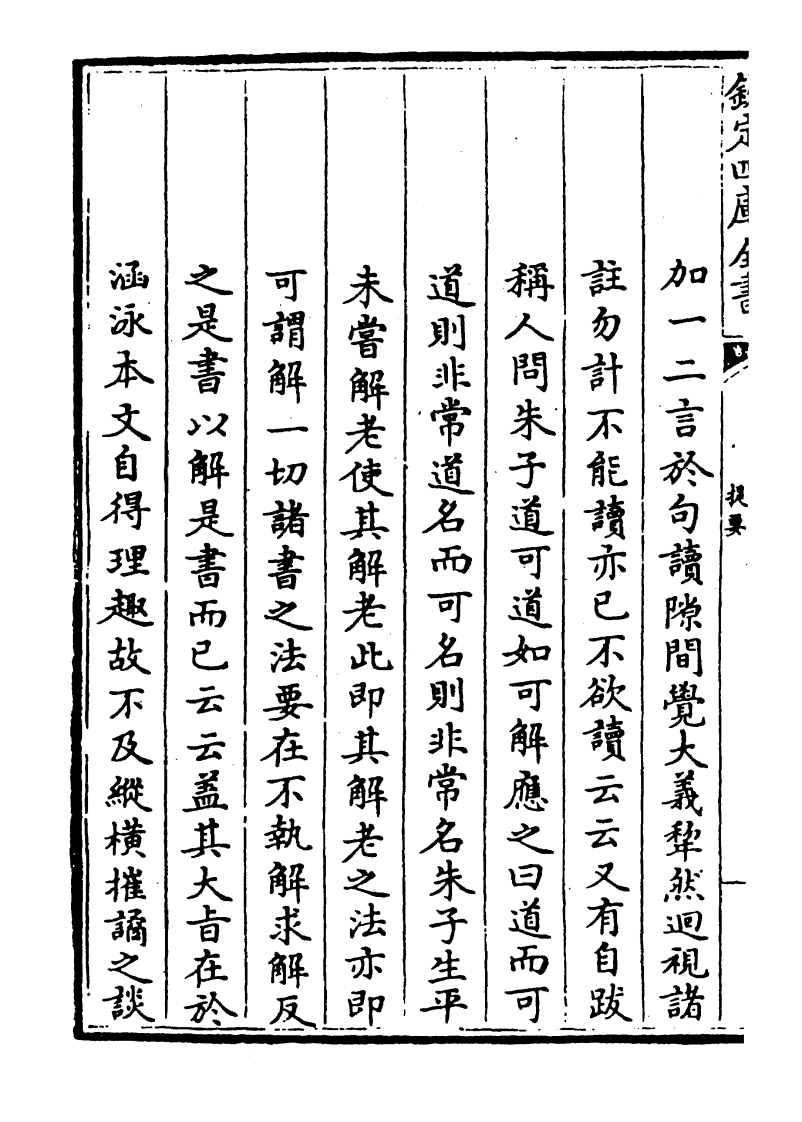 欽定四庫全書
提要
加一二言於句讀隙間覺大義犂然迴視諸
註勿計不能讀亦已不欲讀云云又有自跋
稱人問朱子道可道如可解應之曰道而可
道則非常道名而可名則非常名朱子生平
未嘗解老使其解老此即其解老之法亦即
可謂解一切諸書之法要在不執解求解反
之是書以解是書而已云云蓋其大旨在於
涵泳本文自得理趣故不及縱橫摧譎之談